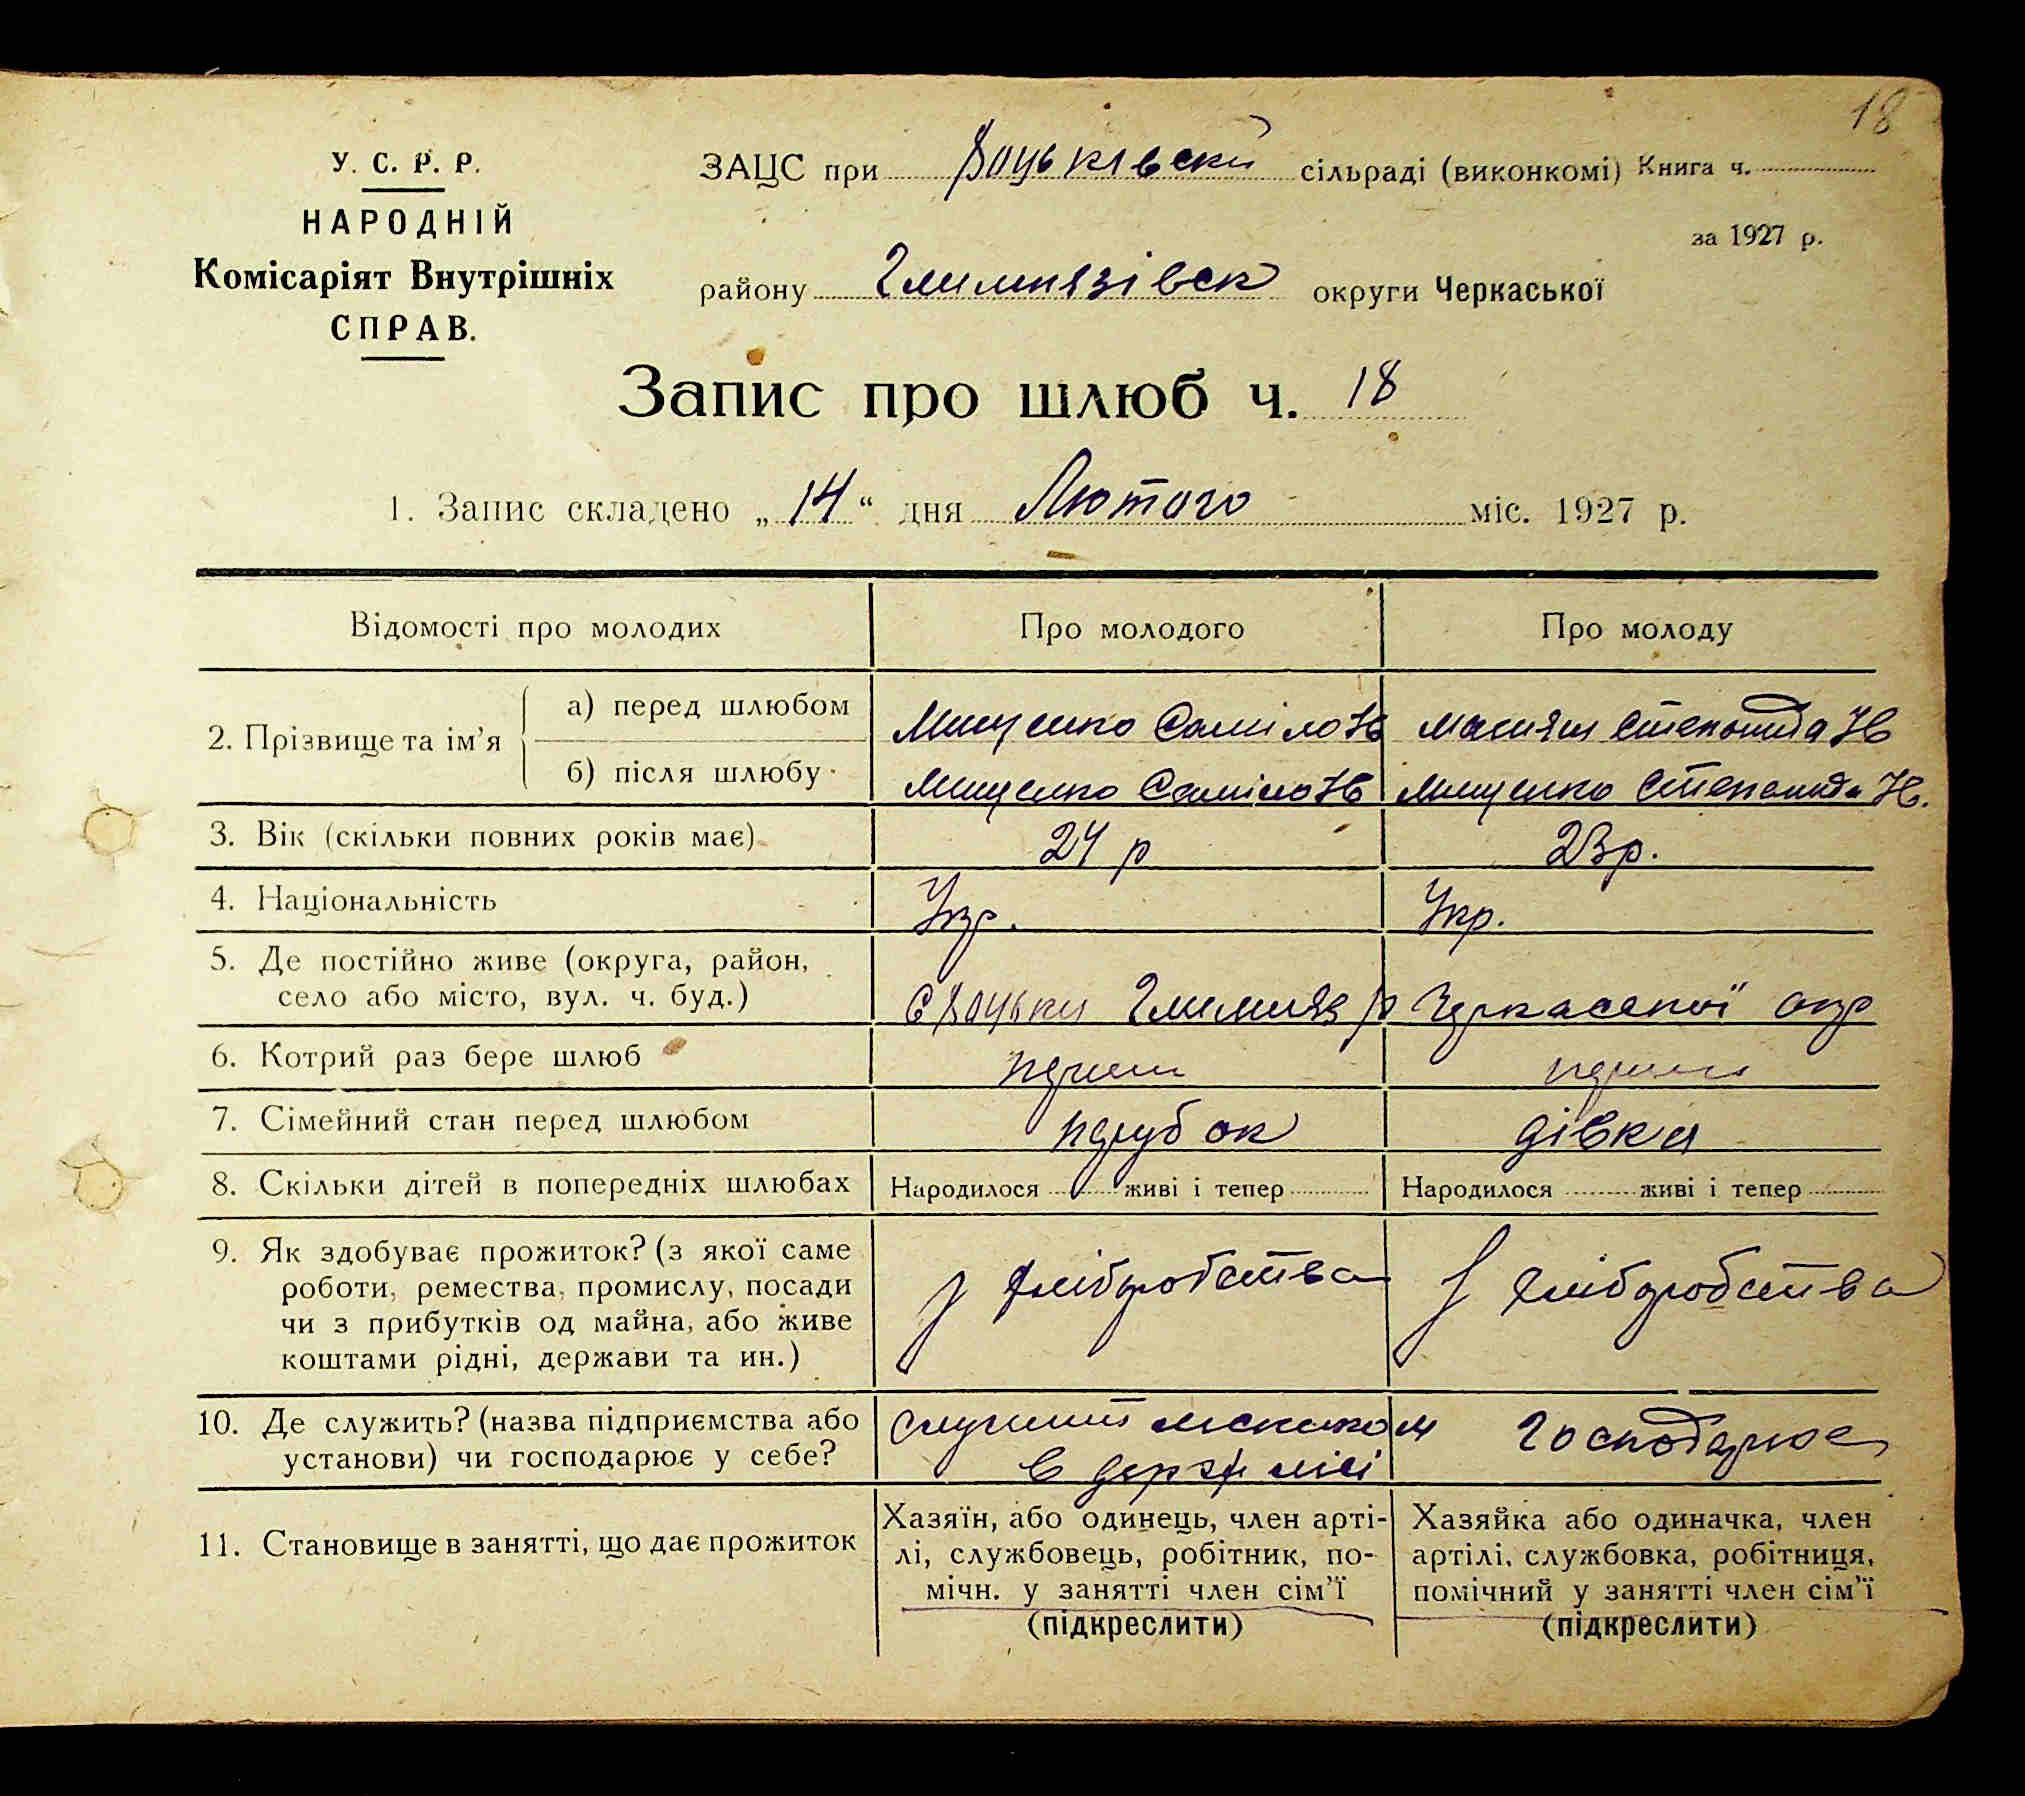 18
У. С. Р. Р.
НАРОДНІЙ
Комісаріят Внутрішніх
СПРАВ.
ЗАЦС при Воцьківскій сільраді (виконкомі) Книга ч.
за 1927 р.
району Гмимязівск округи Черкаської
Запис про шлюб ч. 18
1. Запис складено „14“ дня Лютого міс. 1927 р.
Відомості про молодих Про молодого Про молоду
2. Прізвище та ім’я
а) перед шлюбом Мищенко Саміло Н Степанида Н
б) після шлюбу Мищенко Саміло Н Мищенко Степанида Н.
3. Вік (скільки повних років має) 24 р 23 р.
4. Національність Укр. Укр.
5. Де постійно живе (округа, район,
село або місто, вул. ч. буд.) с Воцьки Гмимяз р Черкаської окр
6. Котрий раз бере шлюб перши перши
7. Сімейний стан перед шлюбом парубок дівка
8. Скільки дітей в попередніх шлюбах Народилося живі і тепер Народилося живі і тепер
9. Як здобуває прожиток? (з якої саме
роботи, ремества, промислу, посади
чи з прибутків од майна, або живе
коштами рідні, держави та ин.)
з хліборобства з хліборобства
10. Де служить? (назва підприємства або
установи) чи господарює у себе?
служит лесником
в держ лісі
господарює
11. Становище в занятті, що дає прожиток
Хазяїн, або одинець, член арті-
лі, службовець, робітник, по-
мічн. у занятті член сім’ї
(підкреслити)
Хазяйка або одиначка, член
артілі, службовка, робітниця,
помічний у занятті член сім’ї
(підкреслити)